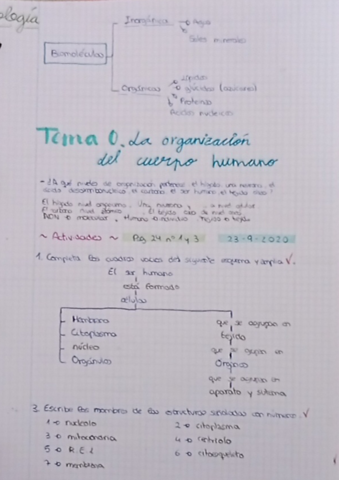 ología
Inorgánicas → Agua
Sales minerales
Biomoléculas
Orgánicas → Lípidos
glúcidos
Proteínas
Ácidos nucleicos
Tema 0. La organización
del cuerpo humano
- ¿A qué nivel de organización pertenece el hígado, una neurona, el
ácido desoxirribonucleico, el carbono, el ser humano, el tejido óseo?
~ Actividades ~ Pág. 24 nº 1 y 3 23-9-2020
1. Completa los cuadros vacíos del siguiente esquema y amplía ✓.
El ser humano
está formado
células
Membrana
Citoplasma
núcleo
Orgánulos
que se agrupan en
tejidos
que se agrupan en
Órganos
que se agrupan en
aparato y sistema
3. Escribe los nombres de las estructuras señaladas con número. ✓
1 → nucleolo 2 → citoplasma
3 → mitocondria 4 → centriolo
5 → R.E.L 6 → citoesqueleto
7 → membrana